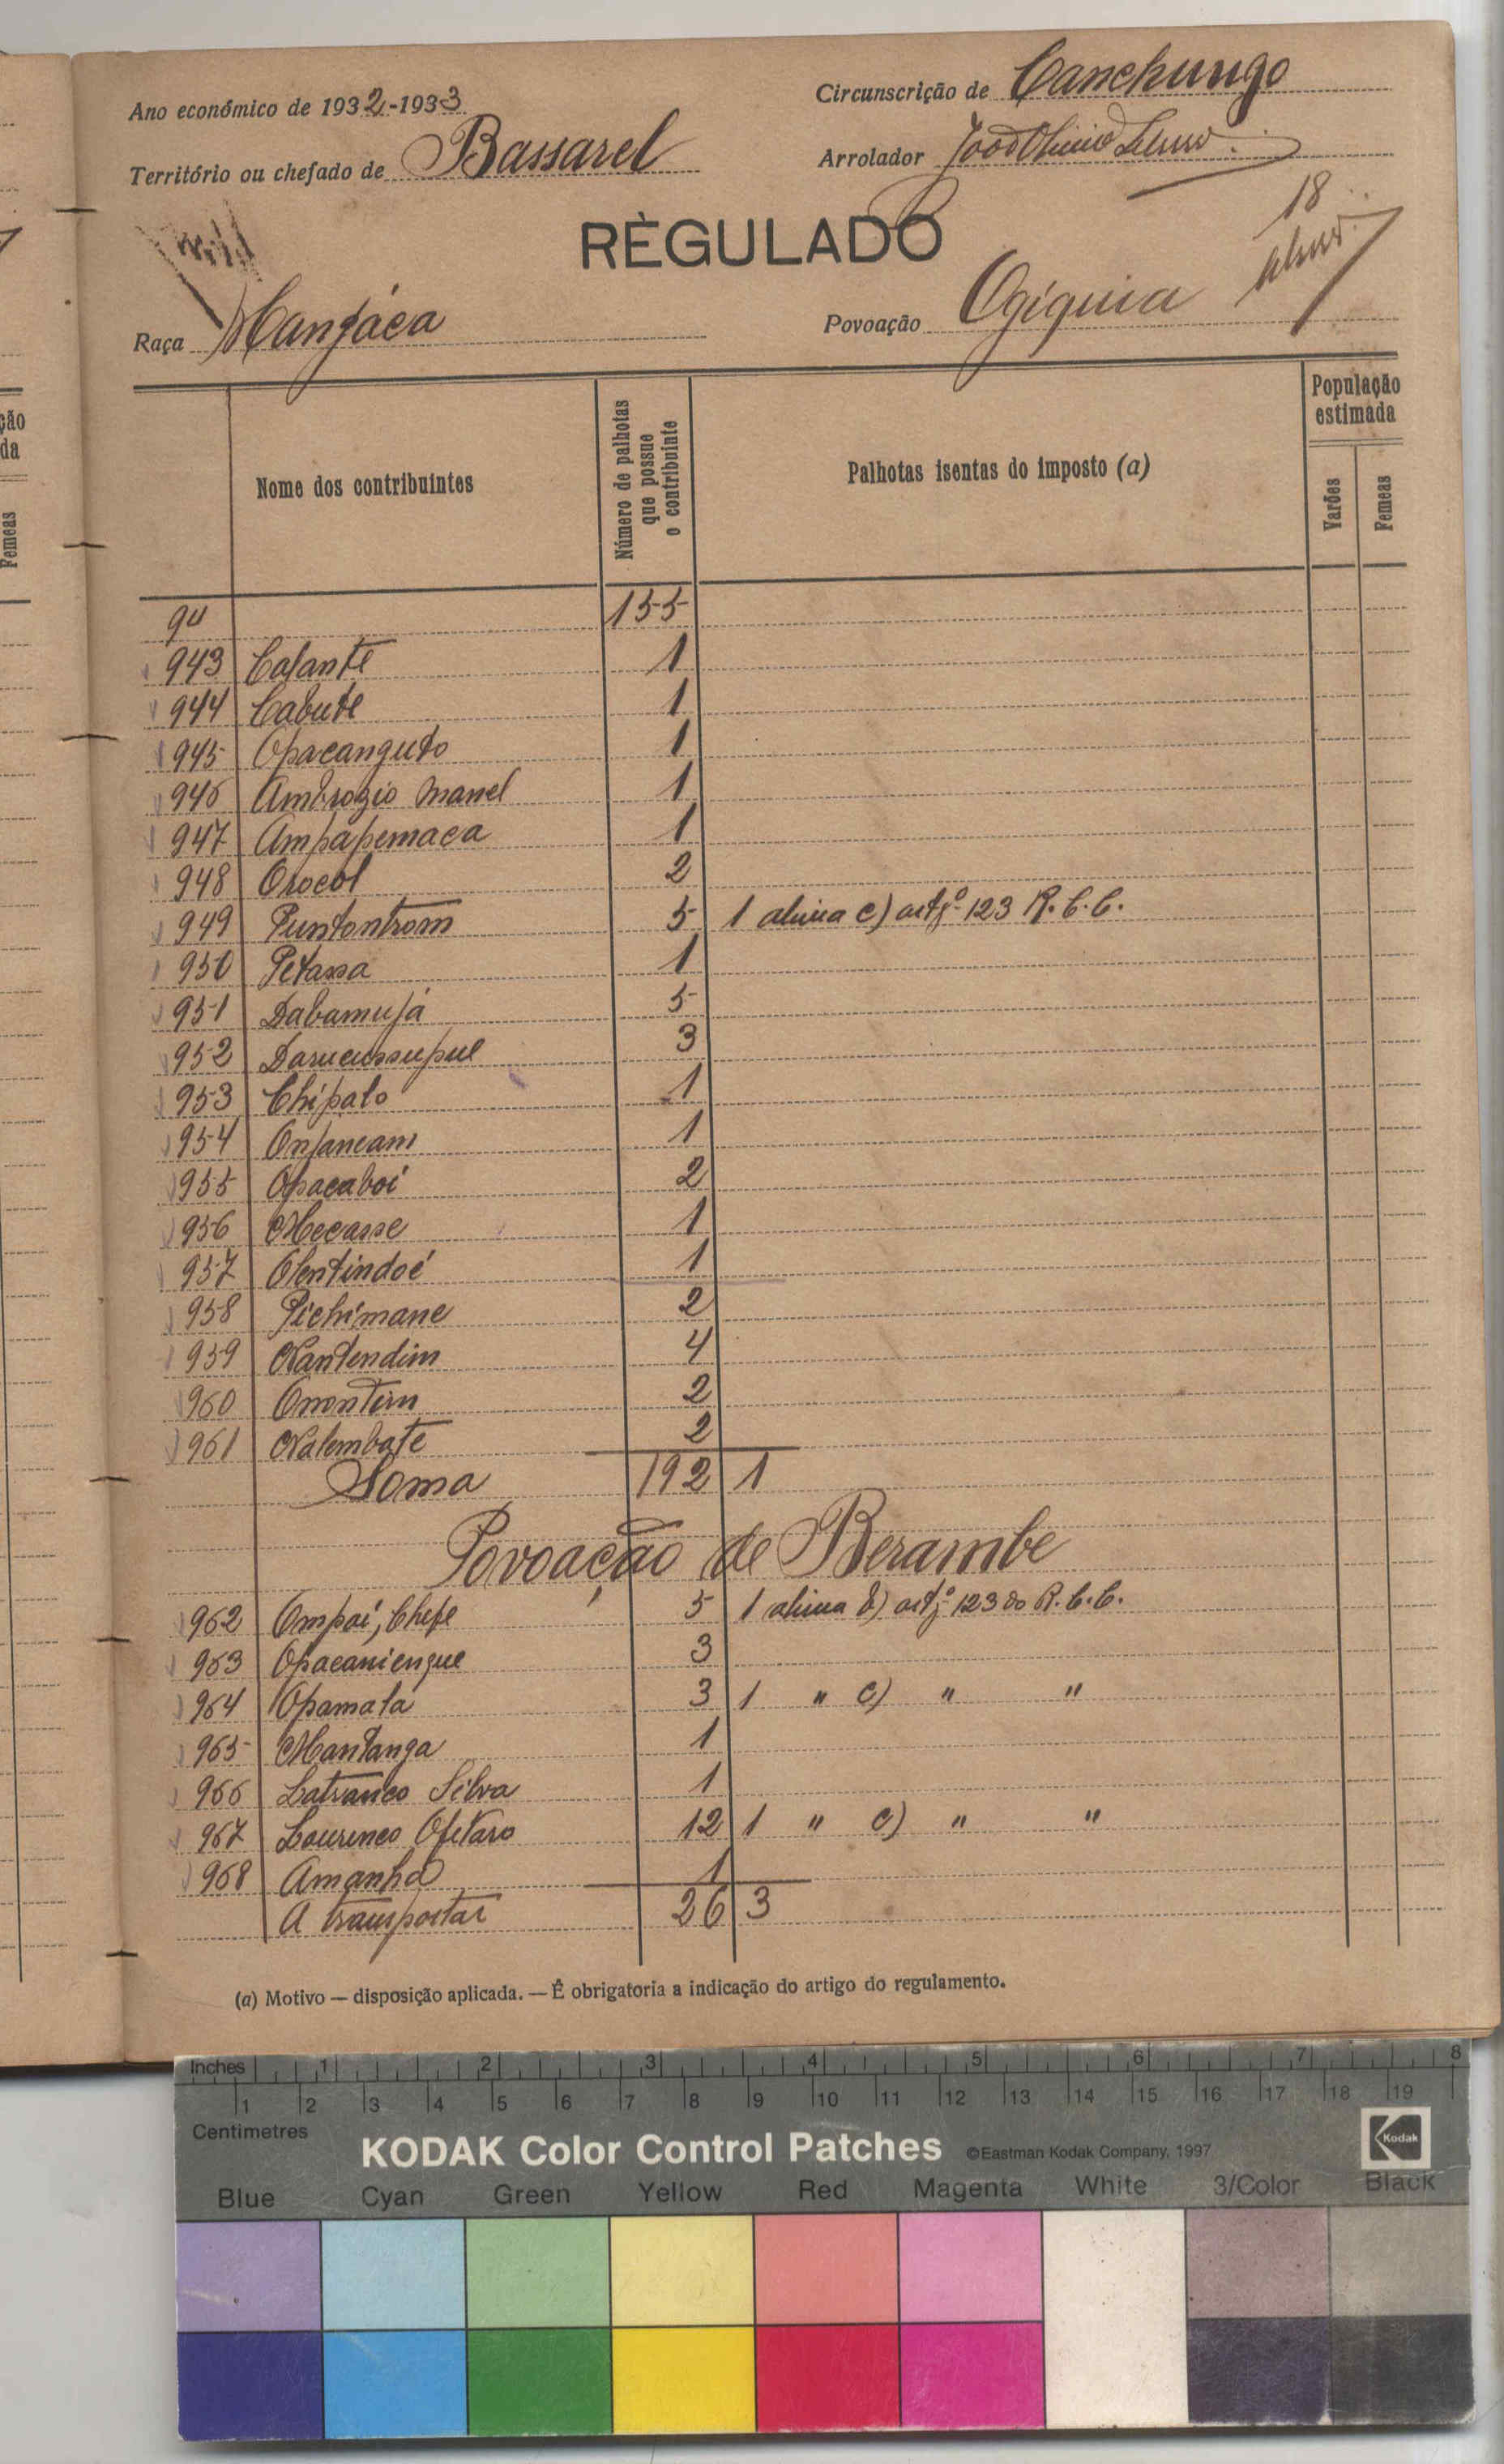 Ano económico de 1932-1933
Circunscrição de Canchungo
Território ou chefado de Bassarel
Arrolador
REGULADO
18
Raça Manjáca
Povoação Ogiquia
Nome dos contribuintes
Número de palhotas que possue o contribuinte
Palhotas isentas do imposto (a)
População estimada
Varões
Femeas
94 155
943 Calante 1
944 Cabute 1
945 Opacanguto 1
946 Ambrozio Manel 1
947 Ampapemaca 1
948 Orocol 2
949 Puntontrom 5 1 alinea c) artgº 123 R.C.C.
950 Petassa 1
951 Dabamujá 5
952 Darucussupul 3
953 Chipalo 1
954 Onjancam 1
955 Opacaboi 2
956 Mecasse 1
957 Olentindoé 1
958 Pichimane 2
959 Nantendim 4
960 Omontim 2
961 Nalembate 2
Soma 192 1
Povoação de Berambe
962 Ompoi, Chefe 5 1 alinea b) artgº 123 do R.C.C.
963 Opacaniengue 3
964 Opamata 3 1 " c) " "
965 Mantanga 1
966 Latranco Silva 1
967 Lourenco Ofetaro 12 1 " c) " "
968 Amanha 1
A transportar 26 3
(a) Motivo — disposição aplicada. — É obrigatoria a indicação do artigo do regulamento.
ção
da
Femeas
Inches 1 2 3 4 5 6 7 8
1 2 3 4 5 6 7 8 9 10 11 12 13 14 15 16 17 18 19
Centimetres
KODAK Color Control Patches ©Eastman Kodak Company, 1997 Kodak
Blue Cyan Green Yellow Red Magenta White 3/Color Black